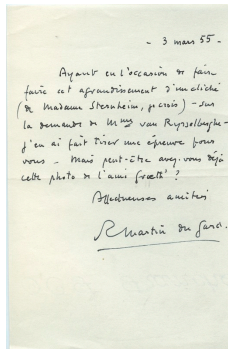 - 3 mars 55 -
Ayant eu l'occasion de faire
faire cet agrandissement d'un cliché
(de Madame Sternheim, je crois) - sur
la demande de Mme van Rysselberghe -
j'en ai fait tirer une épreuve pour
vous - Mais peut-être avez-vous déjà
cette photo de l'ami Groeth ?
Affectueuses amitiés
R Martin du Gard.